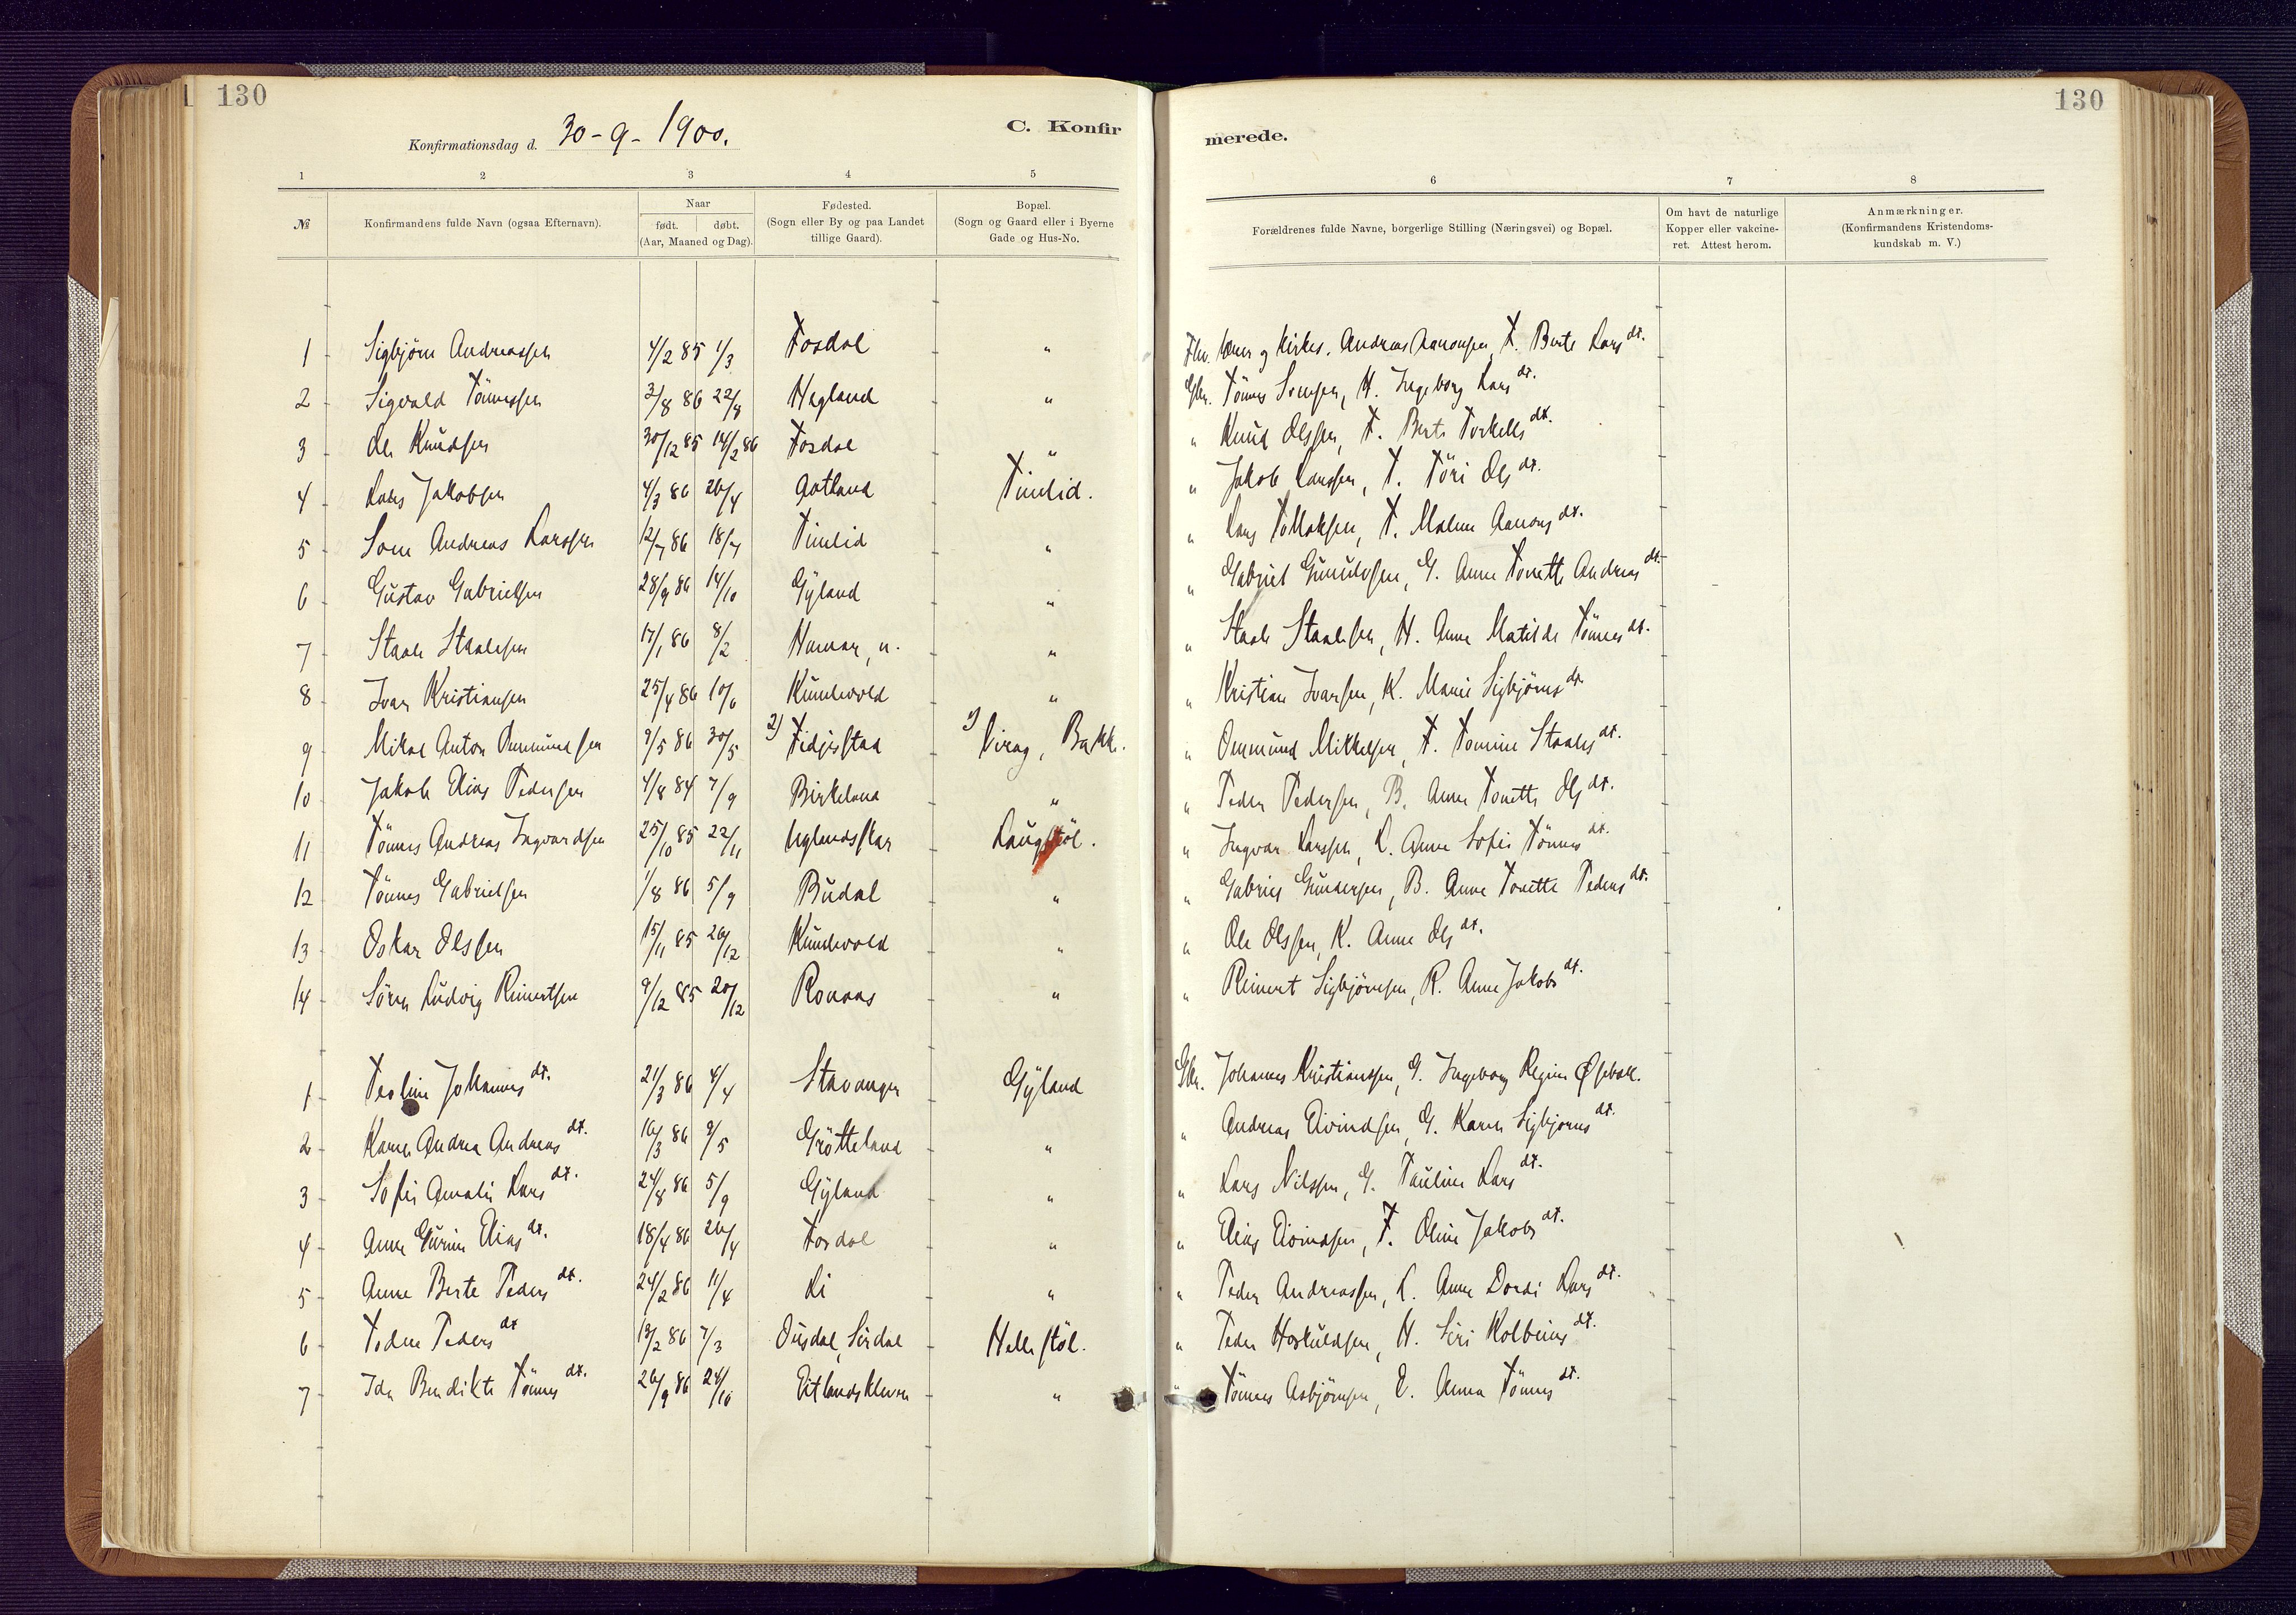 130
130
Konfirmationsdag d. 30-9-1900.
C. Konfir
merede.
1 2 3 4 5 6 7 8
№
Konfirmandens fulde Navn (ogsaa Efternavn).
Naar
født. døbt.
(Aar, Maaned og Dag).
Fødested.
(Sogn eller By og paa Landet
tillige Gaard).
Bopæl.
(Sogn og Gaard eller i Byerne
Gade og Hus-No.
Forældrenes fulde Navne, borgerlige Stilling (Næringsvei) og Bopæl.
Om havt de naturlige
Kopper eller vakcine-
ret. Attest herom.
Anmærkninger.
(Konfirmandens Kristendoms-
kundskab m. V.)
1 Sigbjørn Andreassen 4/2 85 1/3 " Andreas Aanonsen, Berte Lars dt.
2 Sigvald Tönnessen 3/8 86 22/8 Hegland " Gbr. Tönnes Svensen, H. Ingeborg Lars dt.
3 Ole Knudsen 30/12 85 14/2 86 " " Knud Olssen, Berte Torkells dt.
4 Lars Jakobsen 4/3 86 26/4 Aatland " Jakob Larssen, Töri Ols dt.
5 Andreas Larssen 12/7 86 18/7 " " Lars Malene Aanons dt.
6 Gustav Gabrielsen 28/9 86 14/10 Gyland " " Gabriel G. Anne Tonette Andreas dt.
7 Staale Staalesen 17/1 86 8/2 " " Staale Staalesen, H. Anne Matilde Tönnes dt.
8 Ivar Kristiansen 25/4 86 10/6 Kundevold " " Kristian Ivarsen, K. Marie Sigbjörns dt.
9 Mikal Anton Ommundsen 9/5 86 30/5 2) 1) Virag, Bakke. " Ommund Mikkelsen, Tomine Staales dt.
10 Jakob Elias Pedersen 4/8 84 7/9 Birkeland " " Peder Pedersen, B. Anne Tonette Ols dt.
11 Tönnes Andreas Ingvardsen 25/10 85 22/11 Uglandsskar Laugstöl. " Ingvar Larssen, L. Anne Sofie Tönnes dt.
12 Tönnes Gabrielsen 1/8 86 5/9 Budal " " Gabriel Gundersen, B. Anne Tonette Peders dt.
13 Oskar Olssen 15/11 85 26/12 Kundevold " " Ole Olssen, K. Anne Ols dt.
14 Sören Ludvig Reinertsen 9/12 85 20/12 Roaas " " Reinert Sigbjörnsen, R. Anne Jakobs dt.
1 Teoline Johannes dt. 21/3 86 4/4 Stavanger Gyland Gbr. Johannes Kristianssen, G. Ingeborg Regine
2 Karen Andrea Andreas dt. 16/3 86 9/5 Grötteland " " Andreas Eivindsen, G. Karen Sigbjörns dt.
3 Sofie Amalie Lars dt. 24/8 86 5/9 Gyland " " Lars Nilssen, G. Pauline Lars dt.
4 Anne Gurine Elias dt. 18/4 86 26/4 " " Elias Eivindsen, Oline Jakobs dt.
5 Anne Berte Peders dt. 24/2 86 11/4 Li " " Peder Andreassen, L. Anne Dordi Lars dt.
6 Peders dt 13/2 86 7/3 Ousdal, Sirdal Hellestöl. " Peder Hoskuldsen, H. Siri Kolbeins dt.
7 Ida Bendikte Tönnes dt. 26/9 86 24/10 Eitlandskleven " Tönnes Asbjörnsen, E. Anna Tönnes dt.